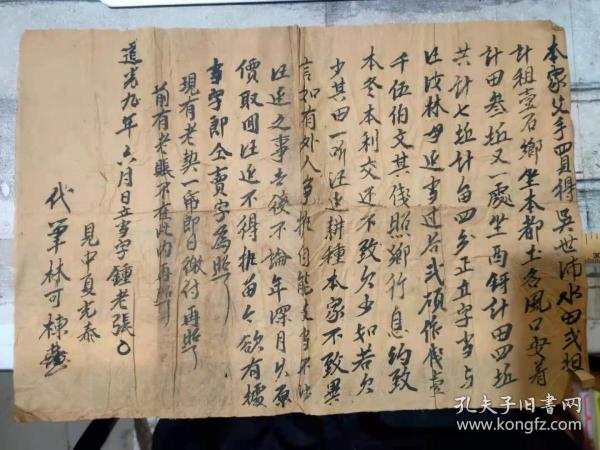 本家父手買得吳世沛水田弍坵
計租壹石鄉坐本都土名風口安着
計田叁坵又一處坐酉鈳計田四坵
共計七坵計畝四分正立字當与
汪汝林母汪當过谷弍碩作戋壹
千伍伯文其戋照鄉行息約致
本冬本利交还不致欠少如若欠
少其田一听汪边耕種本家不致異
言如有外人争执自能支當不涉
汪边之事去後不論年深月久原
價取回汪边不得推苗今欲有據
當字即仝賣字為照
現有老契一帋即日缴付再照
前有老賬不在此内再照
道光九年六月日立當字鍾老張
見中夏光泰
代筆林可棟
孔夫子旧书网
www.kongfz.com